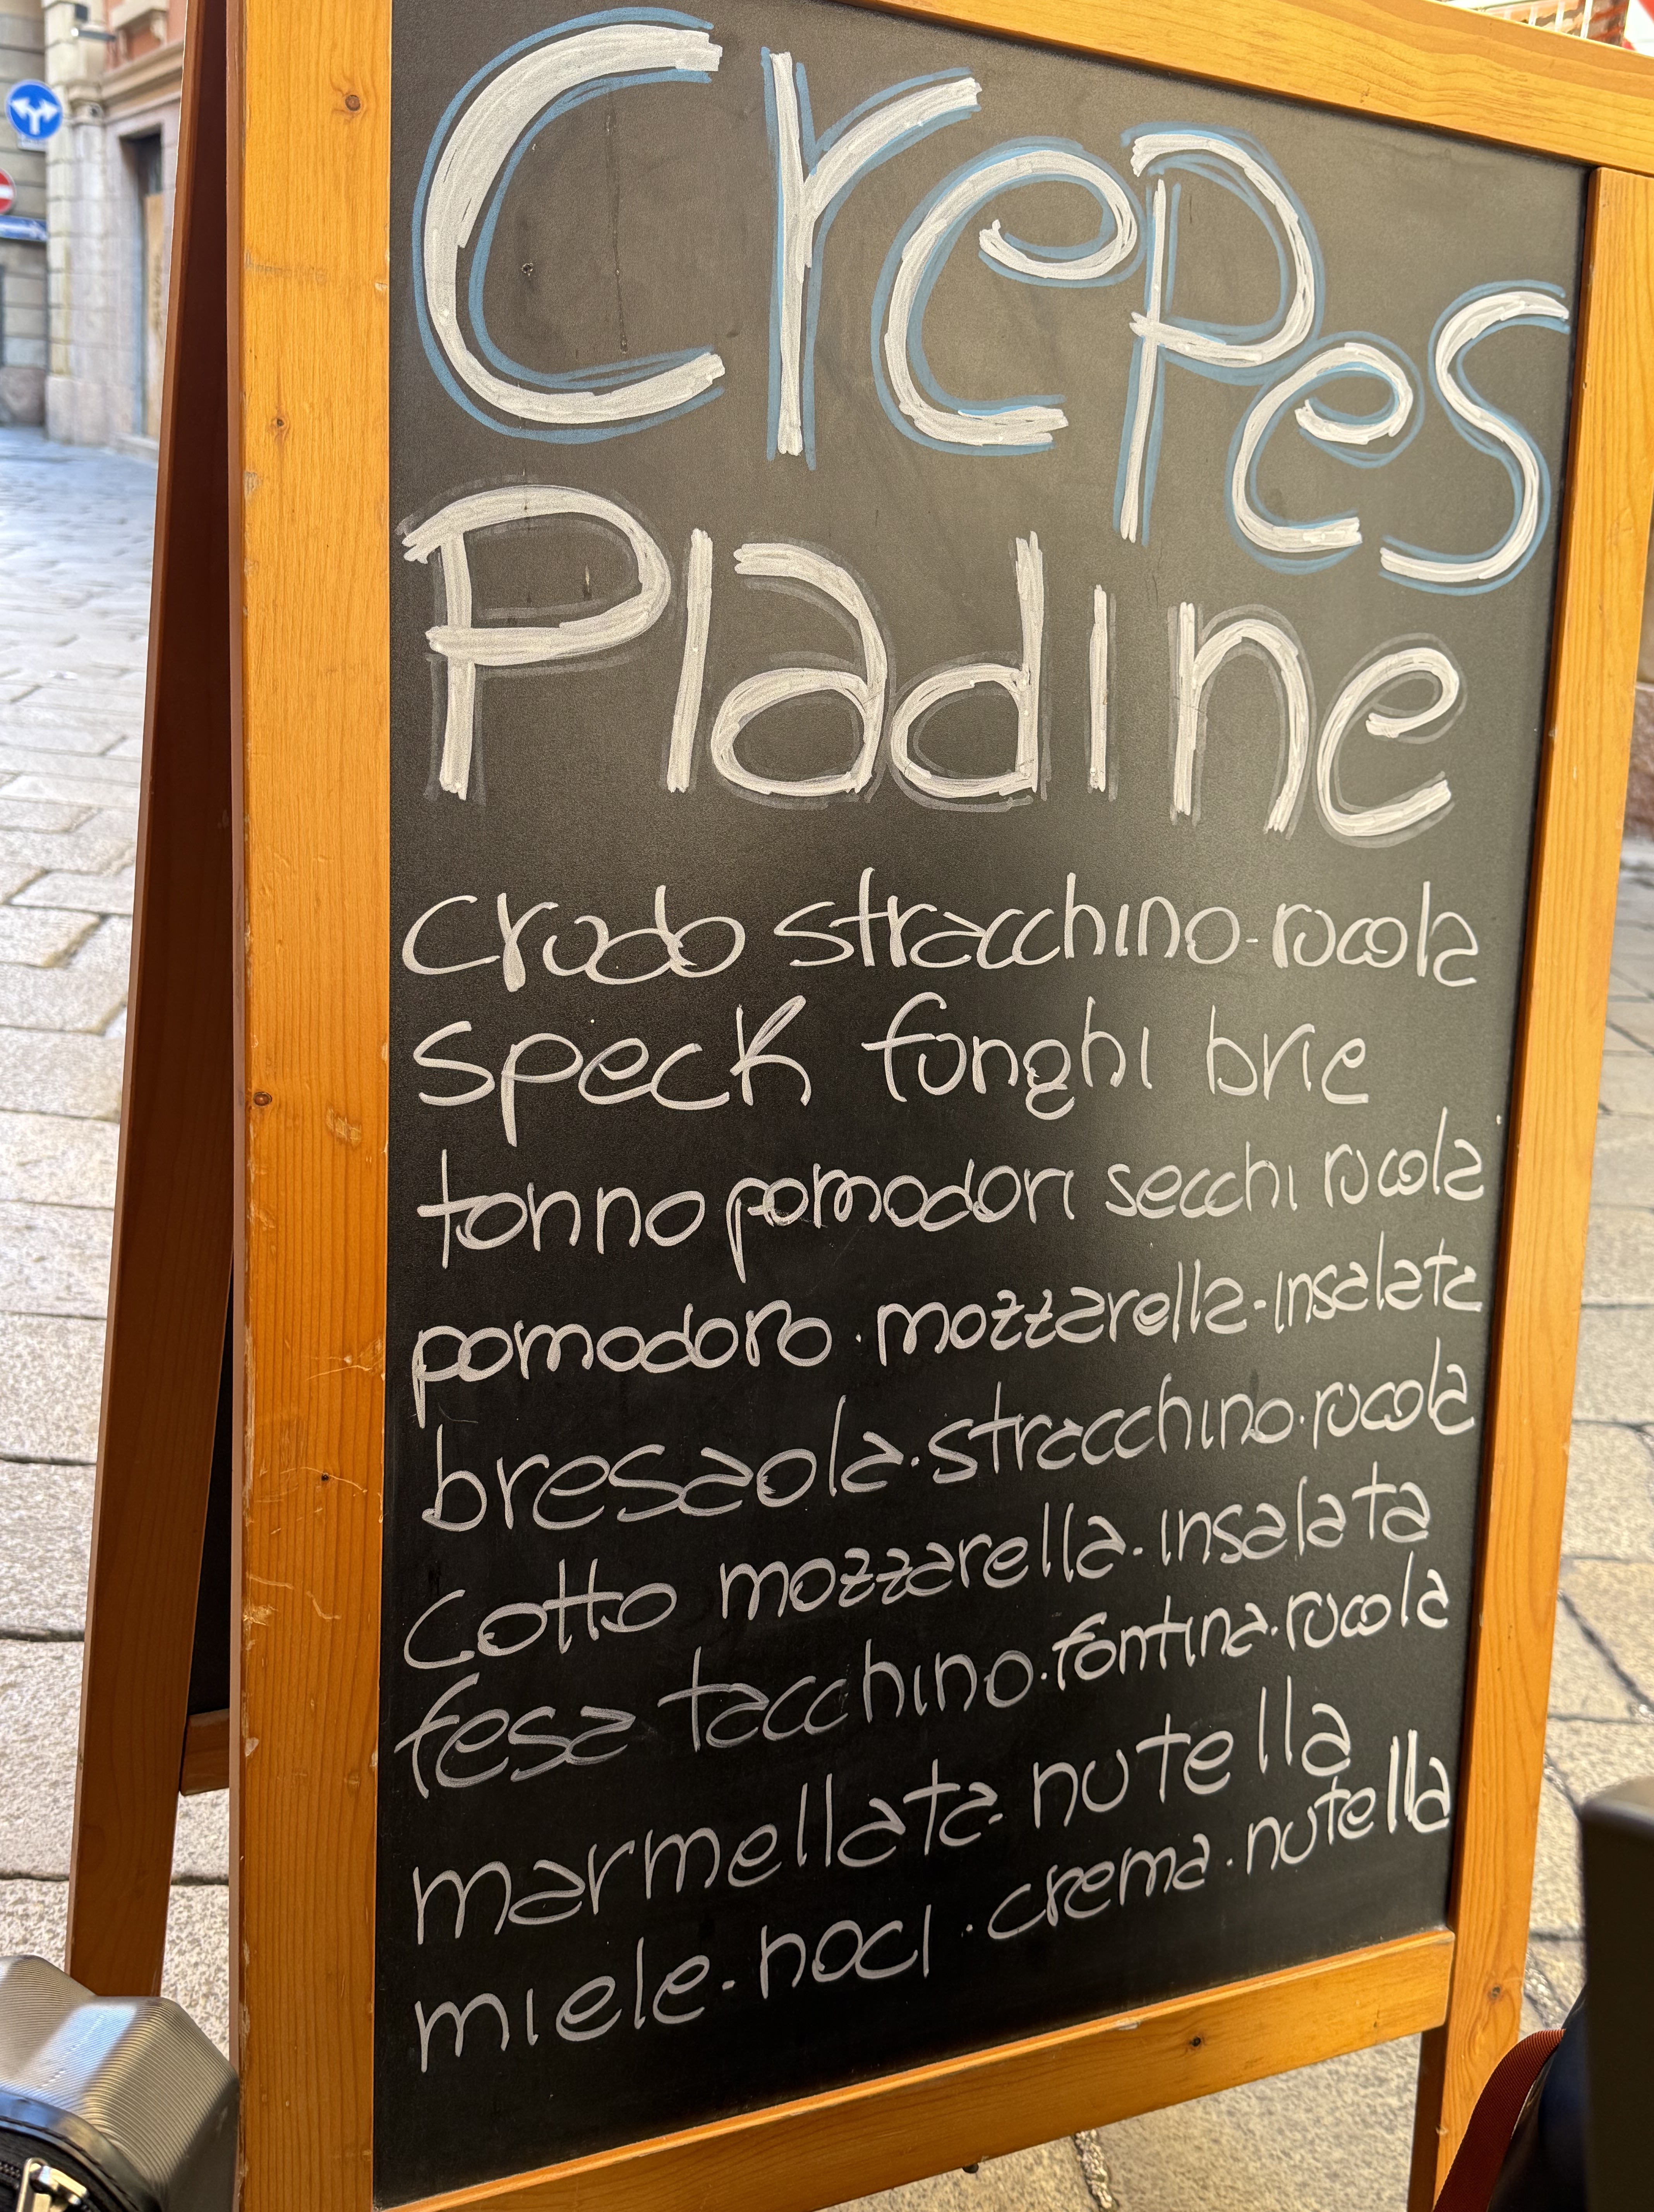 Crepes
Piadine
crudo stracchino-rucola
speck funghi brie
tonno pomodori secchi rucola
pomodoro · mozzarella-insalata
bresaola·stracchino·rucola
cotto mozzarella-insalata
fesa tacchino·fontina·rucola
marmellata-nutella
miele-noci·crema·nutella